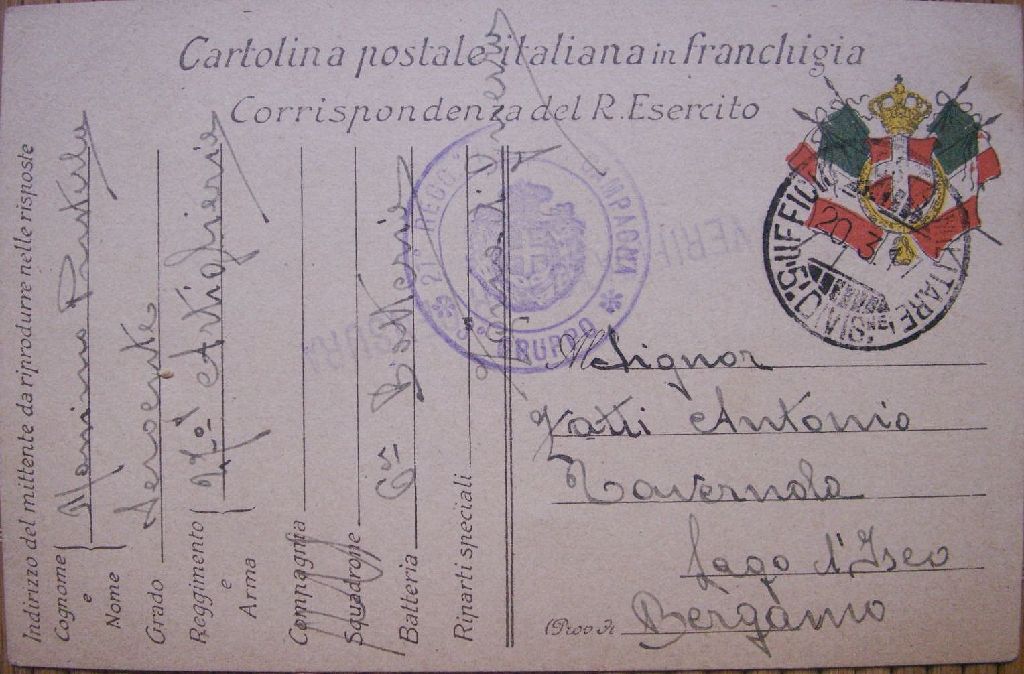 Cartolina postale italiana in franchigia
Corrispondenza del R. Esercito
Indirizzo del mittente da riprodurre nelle risposte
Cognome e Nome
Grado Sergente
Reggimento e Arma 21° Artiglieria
Compagnia
Squadrone
Batteria 6ª Batteria
Riparti speciali
21° REGG CAMPAGNA
GRUPPO
UFFICIO MILITARE
20.3
5ª DIVISNE
Al Signor
Fatti Antonio
Tavernola
Lago d'Iseo
(Prov di Bergamo